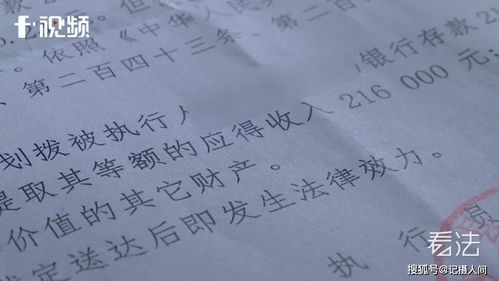 视频
。依照《中华人民
、第二百四十三条、第二
划拨被执行人 银行存款
提取其等额的应得收入 216 000 元
价值的其它财产。
定送达后即发生法律效力。
执 行 员
看法
搜狐号@记摄人间